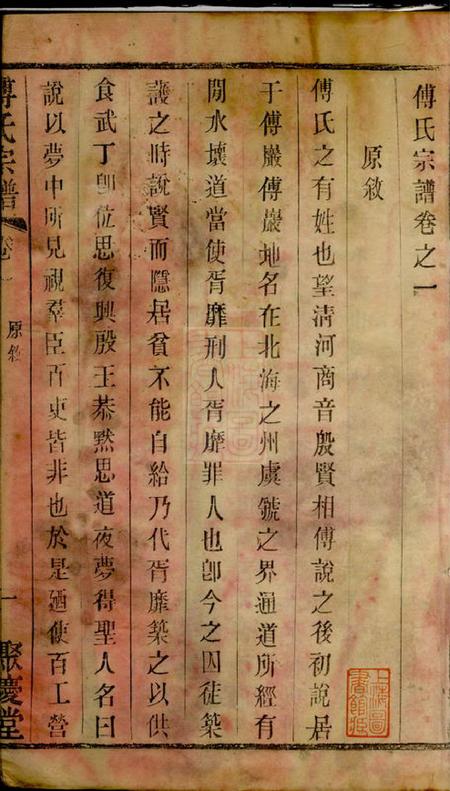 傅氏宗譜卷之一
原敘
傅氏之有姓也望清河商音殷賢相傅說之後初說居
于傅巖傅巖地名在北海之州虞虢之界通道所經有
閒水壞道當使胥靡刑人胥靡罪人也卽今之囚徒築
護之時說賢而隱居貧不能自給乃代胥靡築之以供
食武丁卽位思復興殷王恭默思道夜夢得聖人名曰
說以夢中所見視羣臣百吏皆非也於是廼使百工營
傅氏宗譜
卷一
原敘
一
聚慶堂
上海圖書館藏